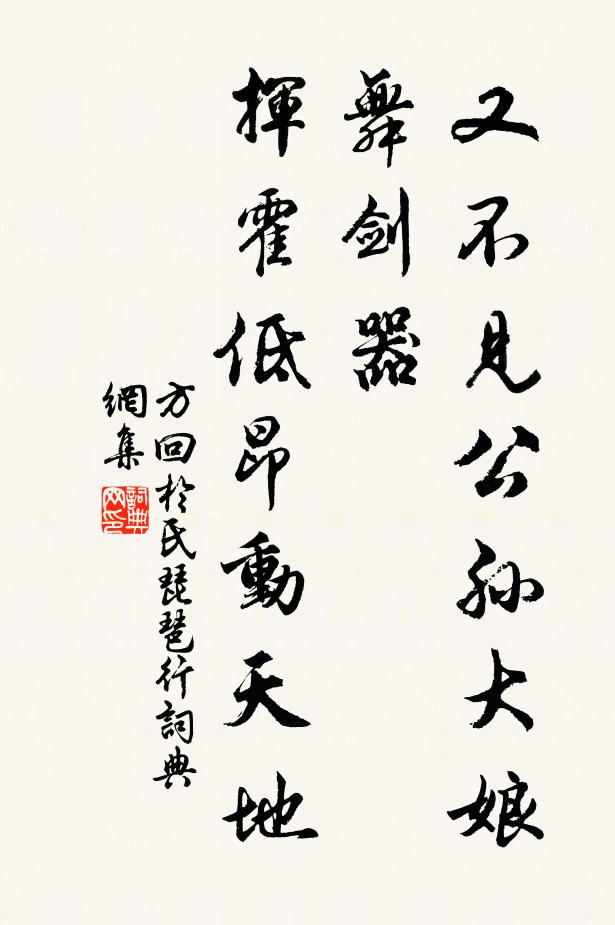 又不見公孫大娘
舞剑器
揮霍低昂動天地
方回於氏琵琶行詞典
網集
詞典
网印